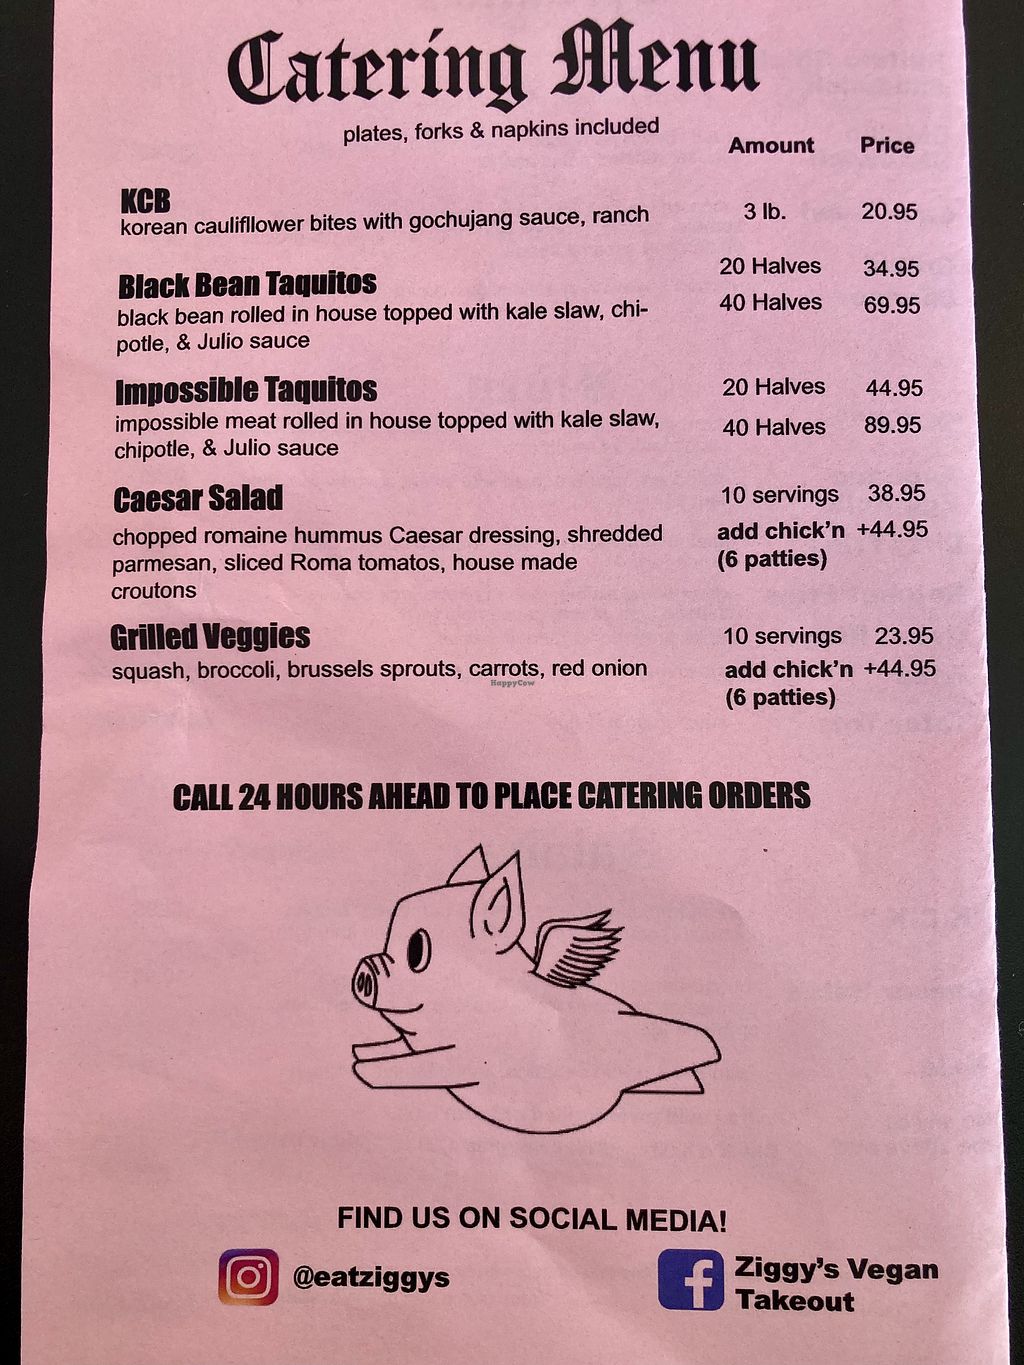 Catering Menu
plates, forks & napkins included
Amount Price
KCB
korean caulifllower bites with gochujang sauce, ranch
3 lb. 20.95
Black Bean Taquitos
black bean rolled in house topped with kale slaw, chi-
potle, & Julio sauce
20 Halves 34.95
40 Halves 69.95
Impossible Taquitos
impossible meat rolled in house topped with kale slaw,
chipotle, & Julio sauce
20 Halves 44.95
40 Halves 89.95
Caesar Salad
chopped romaine hummus Caesar dressing, shredded
parmesan, sliced Roma tomatos, house made
croutons
10 servings 38.95
add chick'n +44.95
(6 patties)
Grilled Veggies
squash, broccoli, brussels sprouts, carrots, red onion
10 servings 23.95
add chick'n +44.95
(6 patties)
HappyCow
CALL 24 HOURS AHEAD TO PLACE CATERING ORDERS
FIND US ON SOCIAL MEDIA!
@eatziggys
Ziggy's Vegan
Takeout